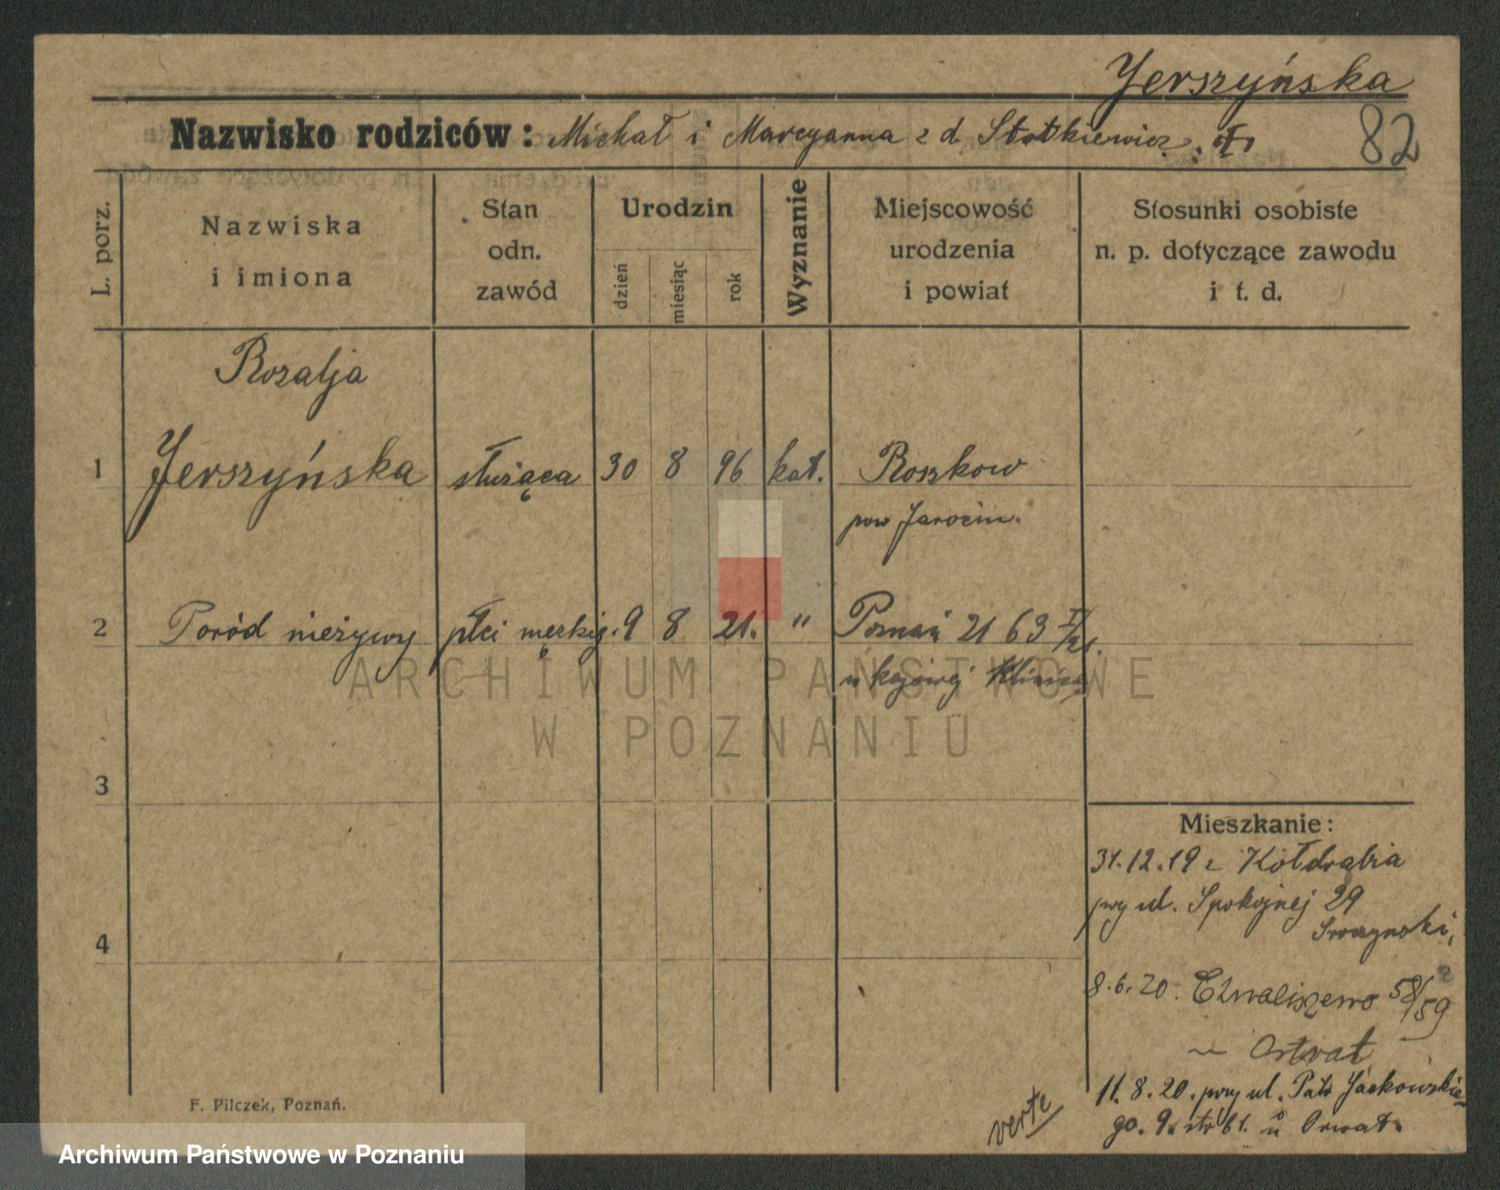 Jerszyńska
Nazwisko rodziców: Michał i Marcyanna z d. Stotkiewicz
82
L. porz.
Nazwiska i imiona
Stan odn. zawód
Urodzin
dzień
miesiąc
rok
Wyznanie
Miejscowość urodzenia i powiat
Stosunki osobiste n. p. dotyczące zawodu i t. d.
Rozalja
1 Jerszyńska służąca 30 8 96 kat. Roszkow
pow Jarocin.
2 Poród nieżywy płci męskiej. 9 8 21. " Poznań 21 63 I/21.
w kajowej Klinice
ARCHIWUM PAŃSTWOWE
W POZNANIU
3
Mieszkanie:
31.12.19 z Kołdrąbia
przy ul. Spokojnej 29
4
8.6.20. Chwaliszewo 58/59
11.8.20. przy ul. Patr Jackowskie-
go. 9. u
verte
F. Pilczek, Poznań.
Archiwum Państwowe w Poznaniu